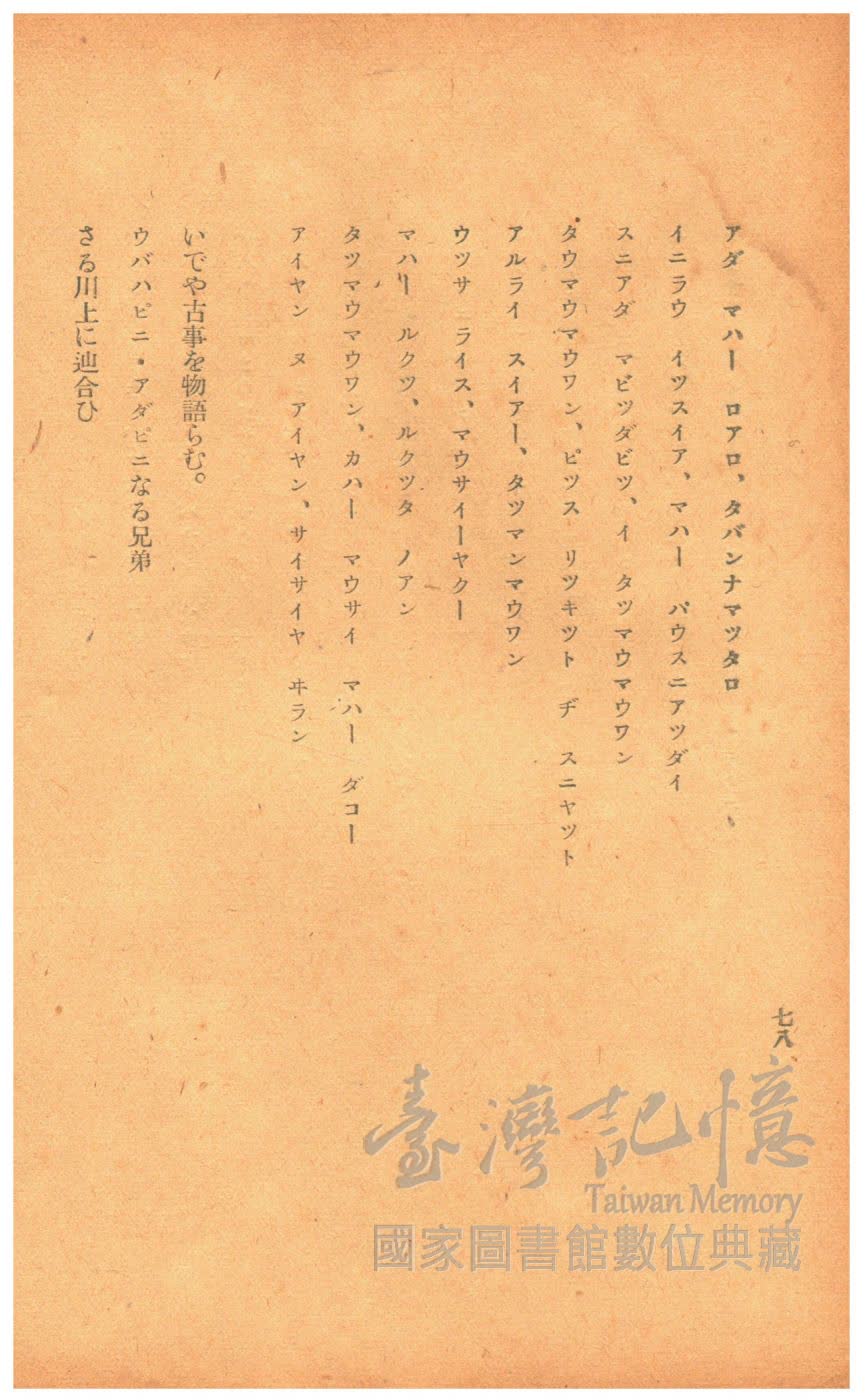 七八
アダ　マハー　ロアロ、タバンナマツタロ
イニラウ　イツスイア、マハー　パウスニアツダイ
スニアダ　マビツダビツ、イ　タツマウマウワン
タウマウマウワン、ピツス　リツキツト　ヂ　スニヤツト
アルライ　スイアー、タツマンマウワン
ウツサ　ライス、マウサイーヤクー
マハリ　ルクツ、ルクツタ　ノアン
タツマウマウワン、カハー　マウサイ　マハー　ダコー
アイヤン　ヌ　アイヤン、サイサイヤ　ヰラン
いでや古事を物語らむ。
ウバハピニ・アダピニなる兄弟
さる川上に辿合ひ
臺灣記憶
Taiwan Memory
國家圖書館數位典藏